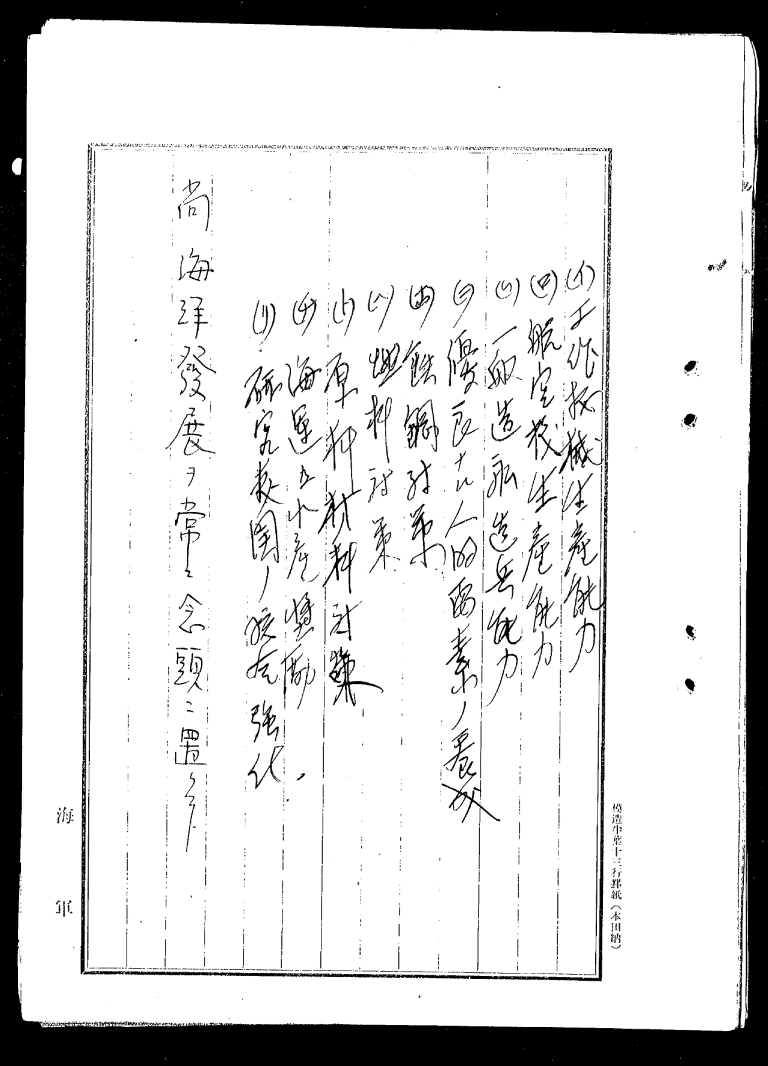 (イ)工作機械生産能力
(ロ)航空機生産能力
(ハ)一般造船造兵能力
(ニ)優良ナル人的要素ノ養成
(ホ)鉄鋼対策
(ヘ)燃料対策
(ト)原料材料対策
(チ)海運及水産奨励
(リ)研究機関ノ拡充強化
尚海洋發展ヲ常ニ念頭ニ置クコト
海軍
模造半葉十三行罫紙(本田納)